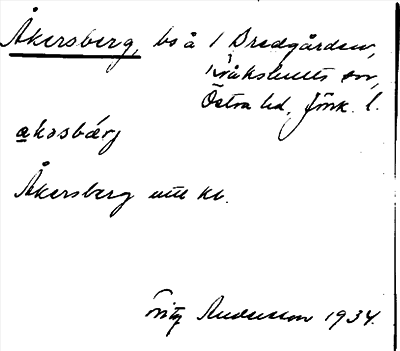 Åkersberg, bs å 1 Bredgården,
Kråkshults sn,
Östra hd, Jönk. l.
akosbærj
Åkersberg utt kl.
Fritz Andersson 1934.